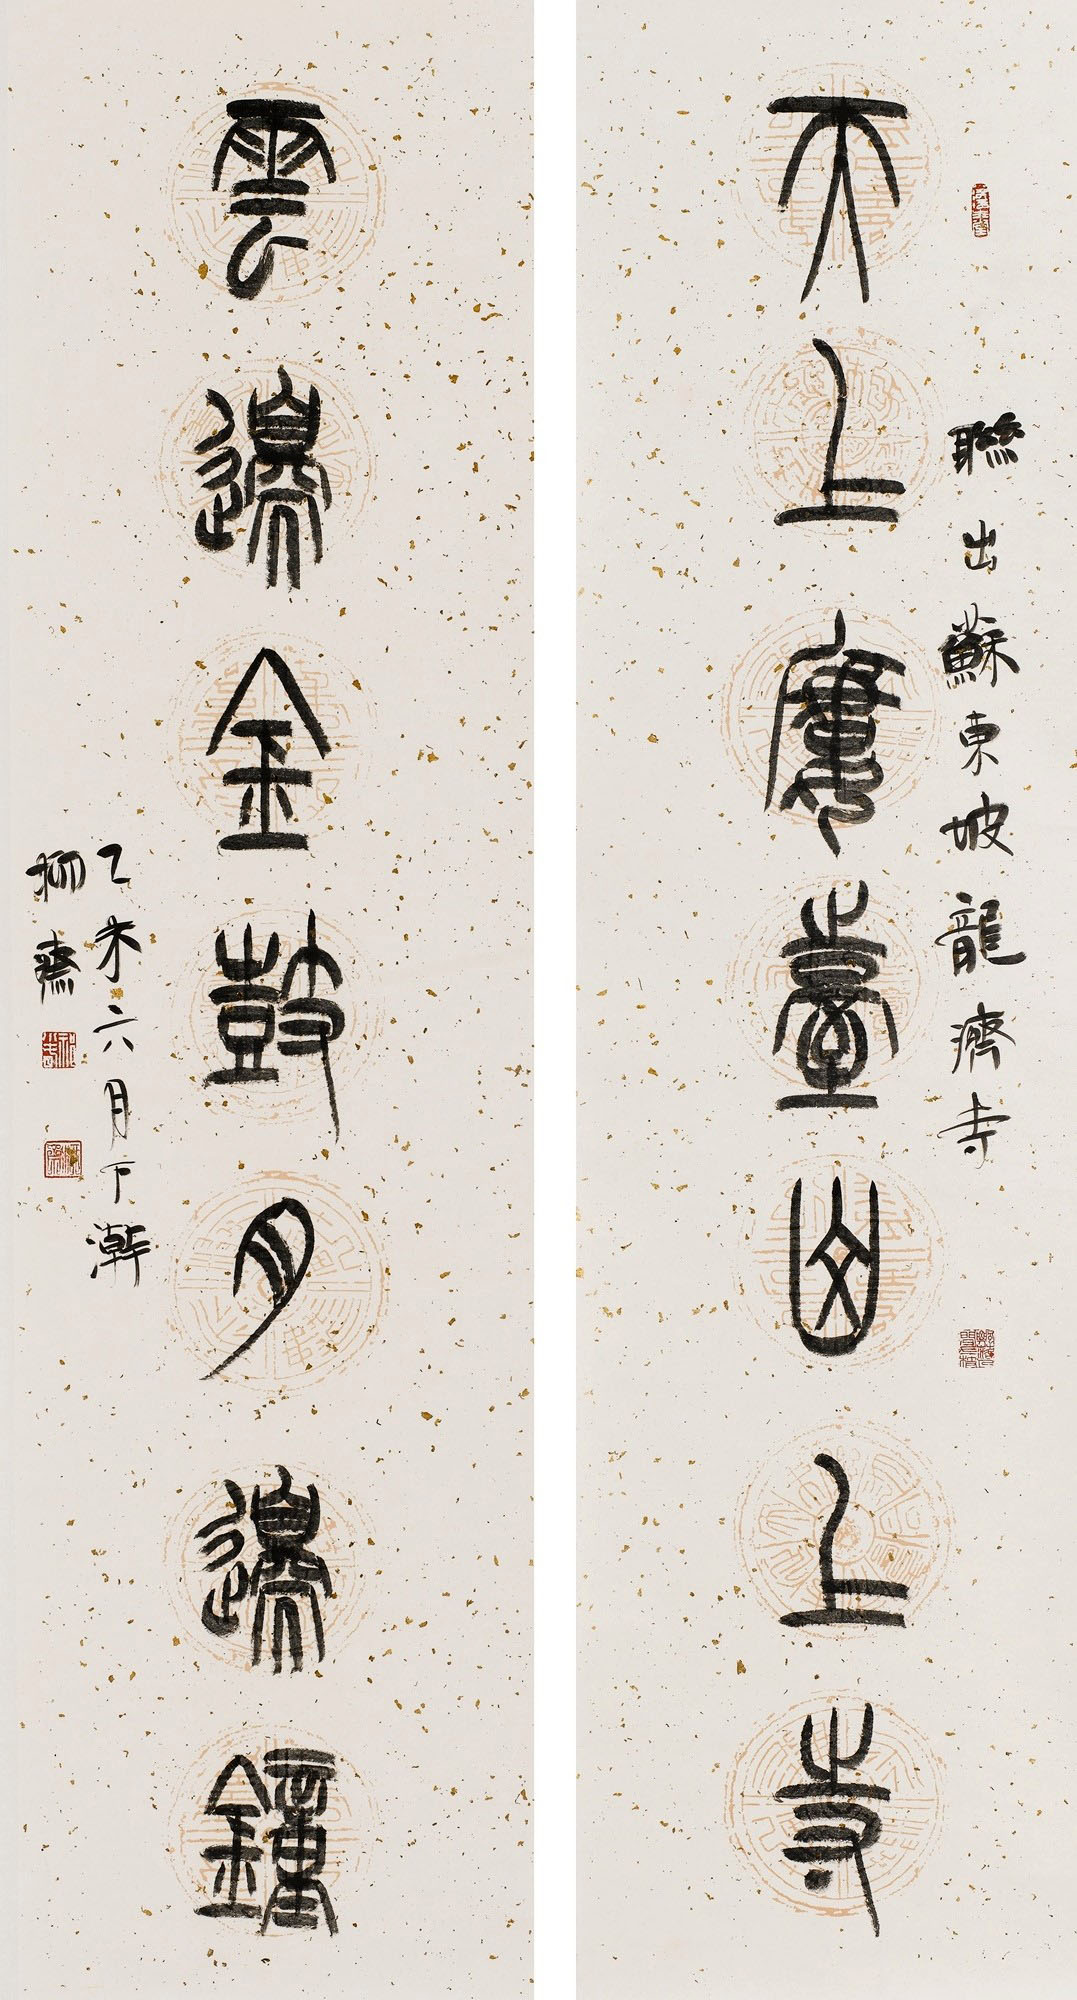 天上廔臺山上寺
聯出蘇東坡龍濟寺
雲邊金鼓月邊鐘
乙未六月下澣
齋